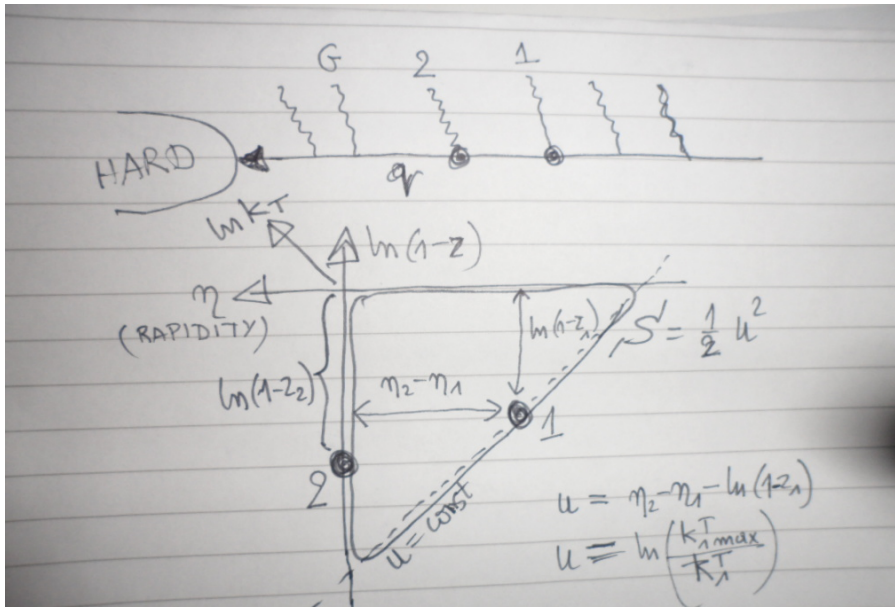 G 2 1
HARD
q
ln kT
ln(1-z)
η
(RAPIDITY)
ln(1-z₁)
S = 1/2 u²
ln(1-z₂)
η₂-η₁
1
2
u = const
u = η₂-η₁-ln(1-z₁)
u = ln(k₁ᵀmax/k₁ᵀ)